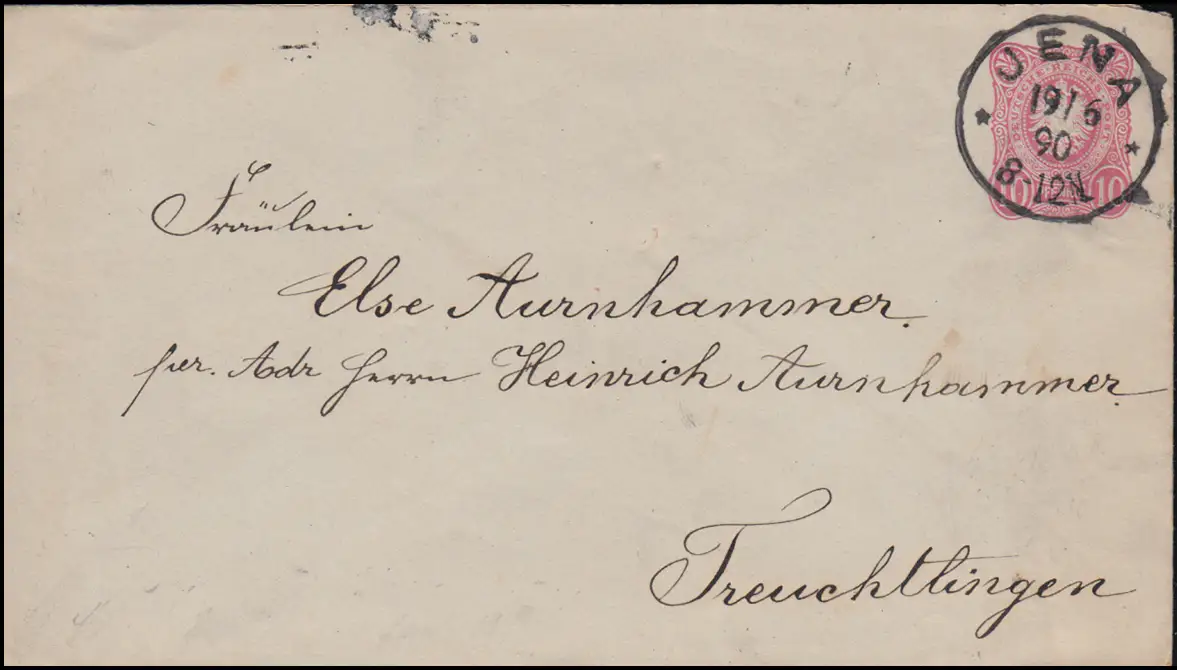 JENA
19/6
90
8-12N.
DEUTSCHE REICHS-POST
10 10
Fräulein
Else Aurnhammer.
per. Adr Herrn Heinrich Aurnhammer.
Treuchtlingen